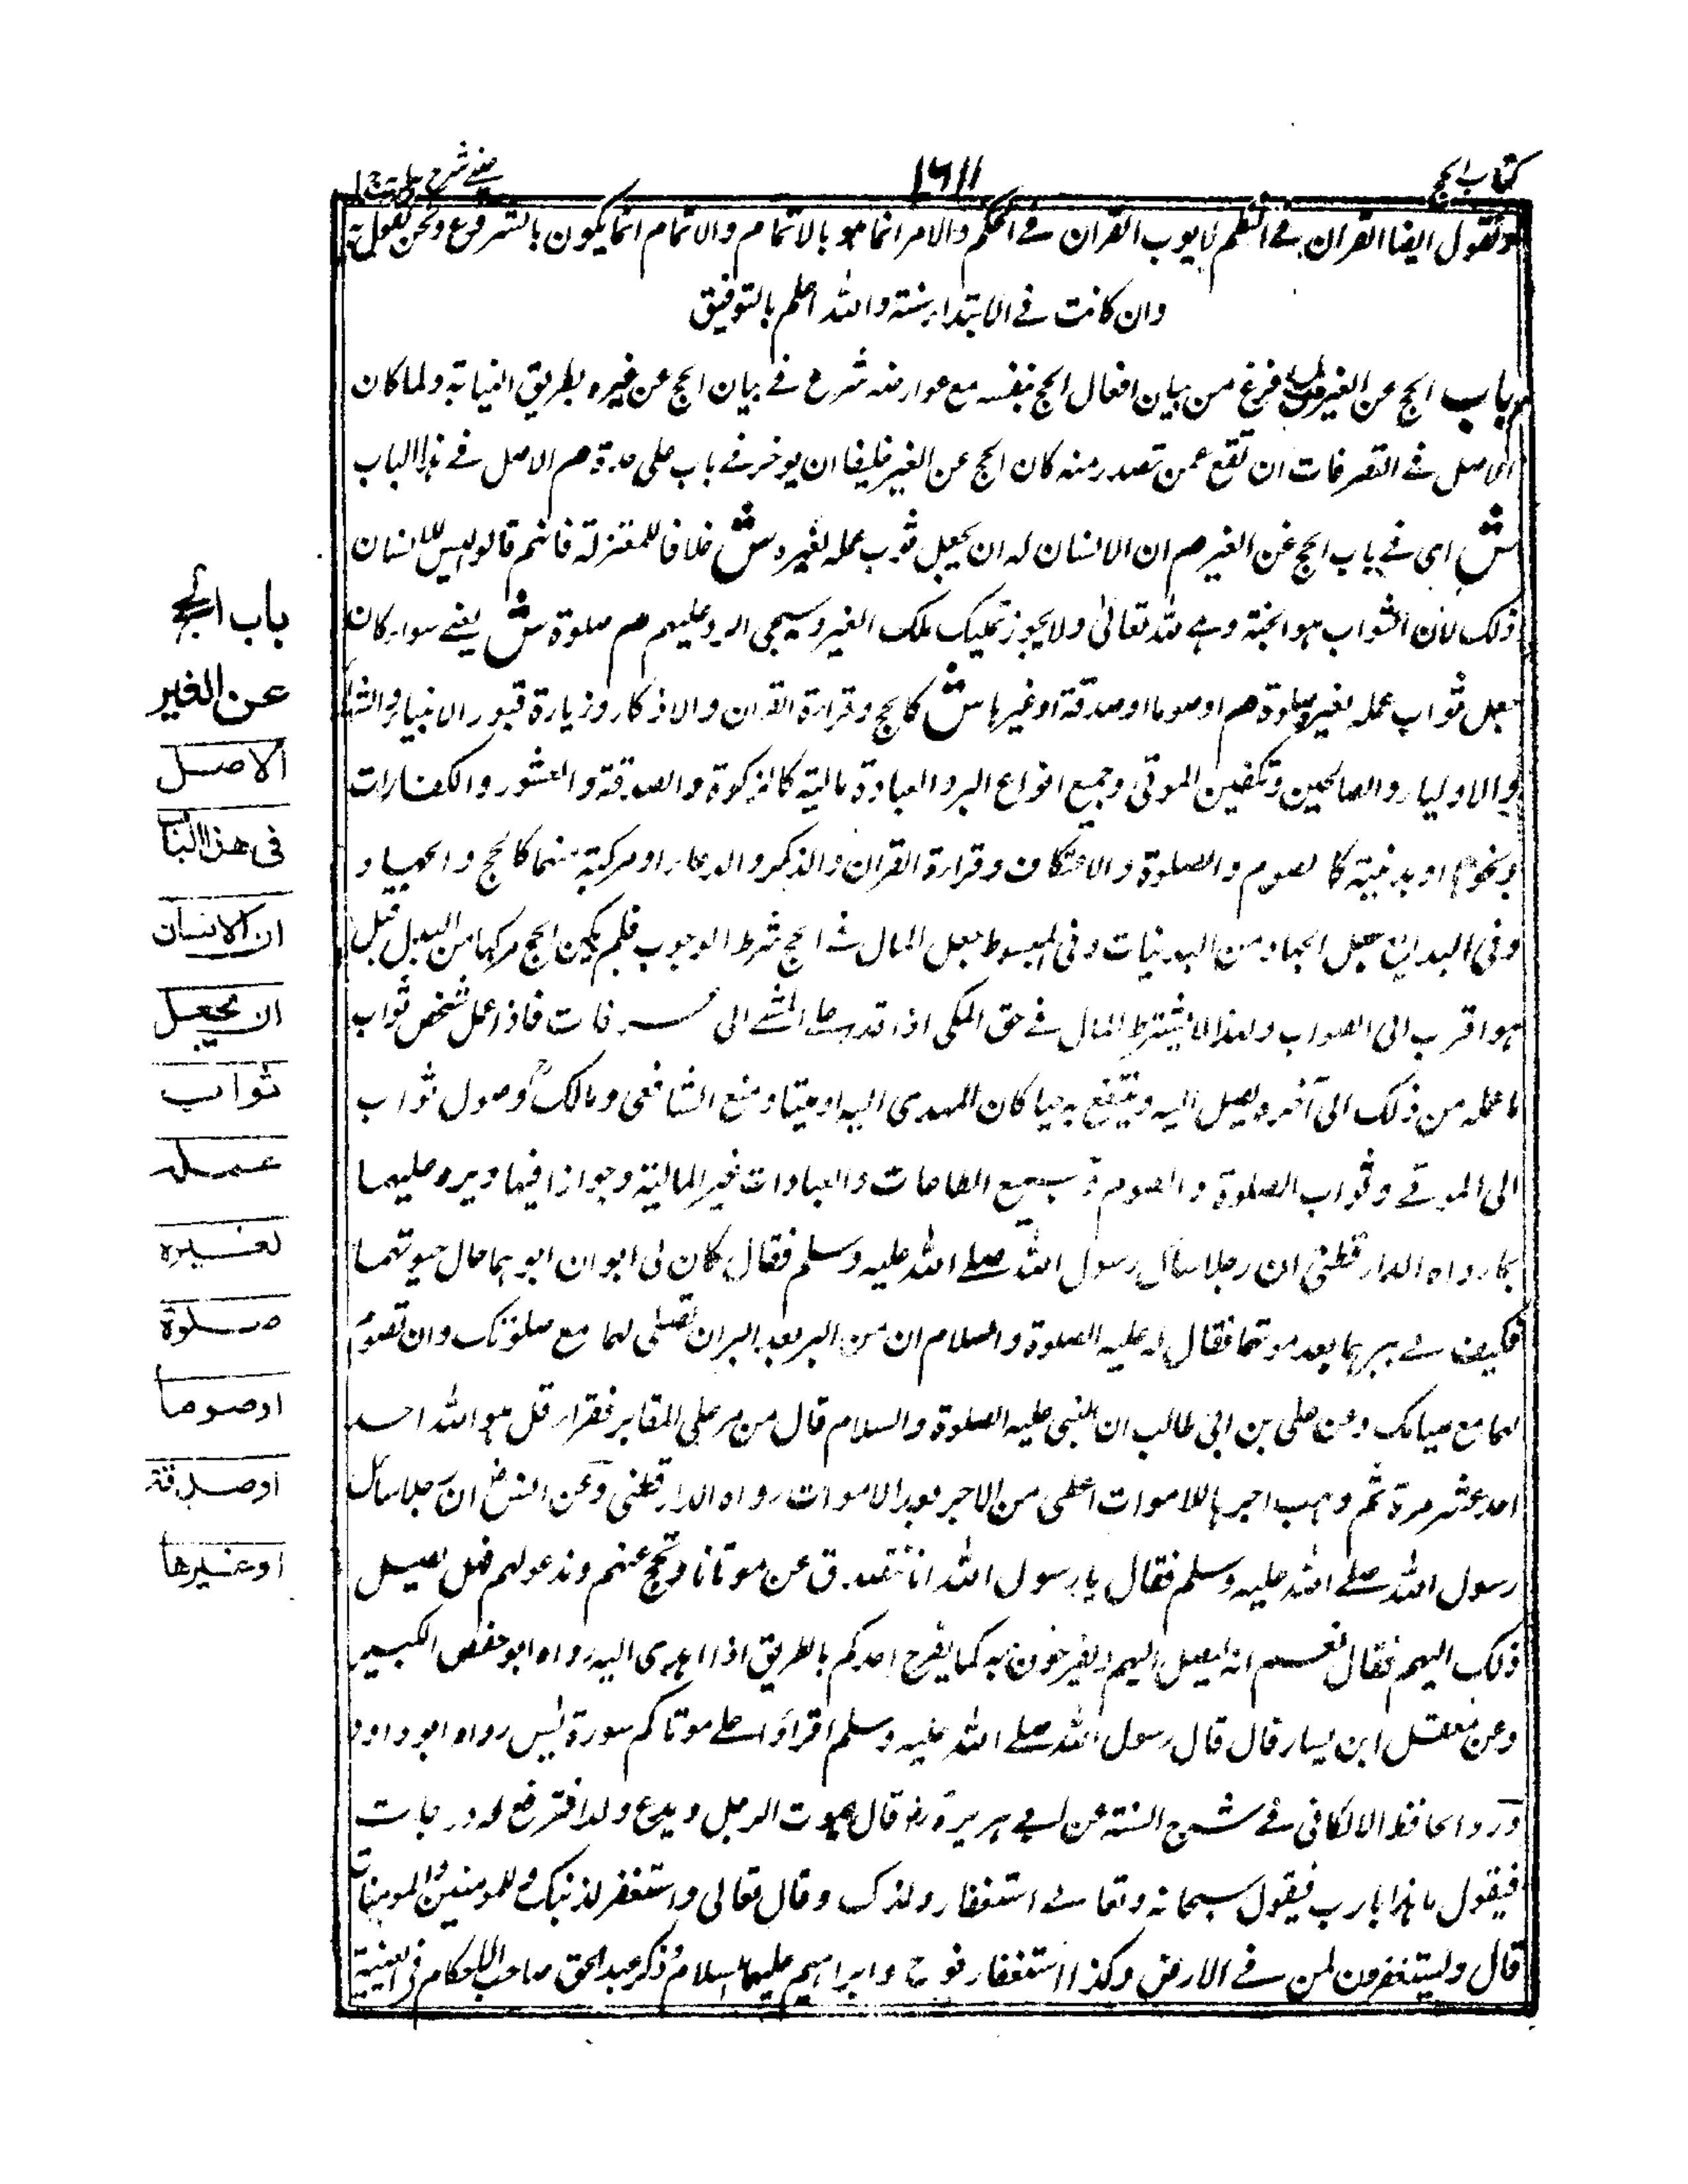 كتاب الحج
١٦١١
عينى شرح هداية ج ١
ونقول ايضا القران فى النظم لا يوجب القران فى الحكم والامر انما هو بالاتمام والاتمام انما يكون بالشروع ونحن نقول به
وان كانت فى الابتداء سنة والله اعلم بالتوفيق
م باب الحج عن الغير ش لما فرغ من بيان افعال الحج بنفسه مع عوارضه شرع فى بيان الحج عن غيره بطريق النيابة ولما كان
الاصل فى التصرفات ان تقع عمن تصدر منه كان الحج عن الغير خليقا ان يوخر فى باب على حدة م الاصل فى هذا الباب
ش اى فى باب الحج عن الغير م ان الانسان له ان يجعل ثواب عمله لغيره ش خلافا للمعتزلة فانهم قالوا ليس للانسان
ذلك لان الثواب هو الجنة وهى لله تعالى ولا يجوز تمليك ملك الغير وسيجى الرد عليهم م صلوة ش يعنى سواء كان
جعل ثواب عمله لغيره صلوة م او صوما او صدقة او غيرها ش كالحج وقراءة القران والاذكار وزيارة قبور الانبياء والشهداء
والاولياء والصالحين وتكفين الموتى وجميع انواع البر والعبادة مالية كالزكوة والصدقة والعشور والكفارات
ونحوها او بدنية كالصوم والصلوة والاعتكاف وقراءة القران والذكر والدعاء او مركبة منهما كالحج والجهاد
وفى البدائع جعل الجهاد من البدنيات وفى المبسوط جعل المال فى الحج شرط الوجوب فلم يكن الحج مركبا من البدل قيل
هو اقرب الى الصواب ولهذا لا يشترط المال فى حق المكى اذا قدر على المشى الى عرفات فاذا عمل شخص ثواب
ما عمله من ذلك الى آخره يصل اليه وينتفع به حيا كان المهدى اليه او ميتا ومنع الشافعى ومالك وصول ثواب
الى الموتى وثواب الصلوة والصوم وجميع الطاعات والعبادات غير المالية وجوازا فيها ويرد عليهما
بما رواه الدارقطنى ان رجلا سأل رسول الله صلى الله عليه وسلم فقال كان لى ابوان ابرهما حال حيوتهما
فكيف لى ببرهما بعد موتهما فقال له عليه الصلوة والسلام ان من البر بعد البر ان تصلى لهما مع صلوتك وان تصوم
لهما مع صيامك وعن على بن ابى طالب ان النبى عليه الصلوة والسلام قال من مر على المقابر فقراء قل هو الله احد
احد عشر مرة ثم وهب اجرها للاموات اعطى من الاجر بعدد الاموات رواه الدارقطنى وعن انس رض ان رجلا سأل
رسول الله صلى الله عليه وسلم فقال يا رسول الله انا نتصدق عن موتانا ونحج عنهم وندعو لهم فهل يصل
ذلك اليهم فقال نعم انه ليصل اليهم ويفرحون به كما يفرح احدكم بالطريق اذا اهدى اليه رواه ابو حفص الكبير
وعن معقل ابن يسار قال قال رسول الله صلى الله عليه وسلم اقرأوا على موتاكم سورة يس رواه ابو داود
ورد الحافظ الالكائى فى شرح السنة عن ابى هريرة رض قال يموت الرجل ويدع ولدا فترفع له درجات
فيقول ما هذا يا رب فيقول سبحانه وتعالى استغفار ولدك وقال تعالى واستغفر لذنبك وللمومنين والمومنات
قال ويستغفرون لمن فى الارض وكذا استغفار نوح وابراهيم عليهما السلام وذكر عبد الحق صاحب الاحكام فى
باب الحج
عن الغير
الاصل
فى هذا الباب
ان الانسان
ان يجعل
ثواب
عمله
لغيره
صلوة
او صوما
او صدقة
او غيرها